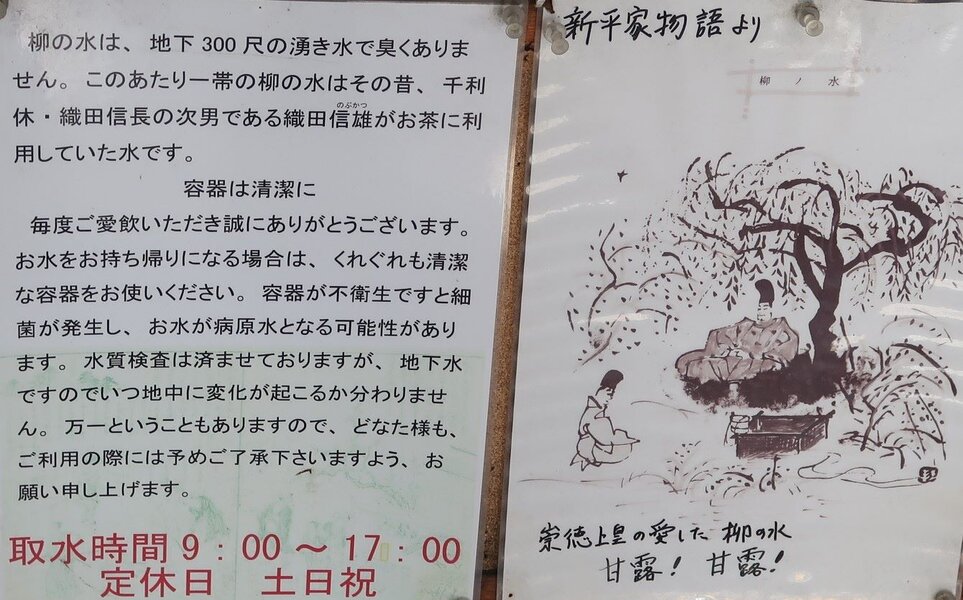 柳の水は、地下300尺の湧き水で臭くありま
せん。このあたり一帯の柳の水はその昔、千利
休・織田信長の次男である織田信雄がお茶に利
のぶかつ
用していた水です。
容器は清潔に
毎度ご愛飲いただき誠にありがとうございます。
お水をお持ち帰りになる場合は、くれぐれも清潔
な容器をお使いください。容器が不衛生ですと細
菌が発生し、お水が病原水となる可能性があり
ます。水質検査は済ませておりますが、地下水
ですのでいつ地中に変化が起こるか分わりませ
ん。万一ということもありますので、どなた様も、
ご利用の際には予めご了承下さいますよう、お
願い申し上げます。
取水時間9:00～17:00
定休日 土日祝
新平家物語より
柳ノ水
崇徳上皇の愛した柳の水
甘露! 甘露!